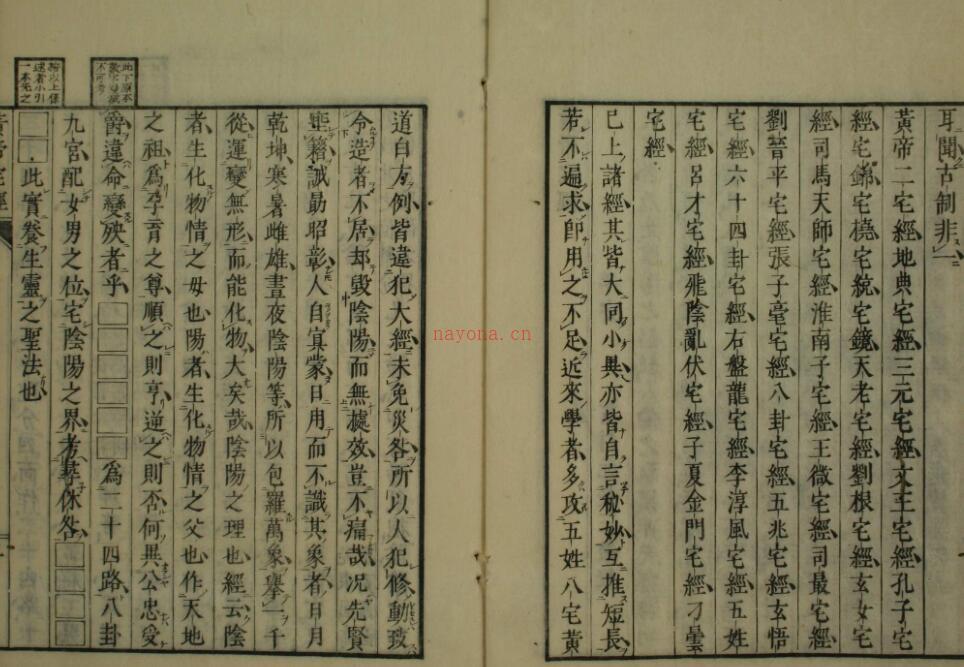 耳聞古制非一
黃帝二宅經地典宅經三元宅經文王宅經孔子宅
經宅錦宅撓宅統宅鏡天老宅經劉根宅經玄女宅
經司馬天師宅經淮南子宅經王微宅經司最宅經
劉晉平宅經張子毫宅經八卦宅經五兆宅經玄悟
宅經六十四卦宅經右盤龍宅經李淳風宅經五姓
宅經呂才宅經飛陰亂伏宅經子夏金門宅經刁曇
宅經
已上諸經其皆大同小異亦皆自言秘妙互推短長
若不遍求即用之不足近來學者多攻五姓八宅黃
道白方例皆違犯大經未免災咎所以人犯修動致
令造者不居却毀陰陽而無據效豈不痛哉况先賢
垂籍誡勗昭彰人自冥蒙日用而不識其象者日月
乾坤寒暑雌雄晝夜陰陽等所以包羅萬象舉一千
從運變無形而能化物大矣哉陰陽之理也經云陰
者生化物情之母也陽者生化物情之父也作天地
之祖為孕育之尊順之則亨逆之則否何異公忠受
爵違命變殃者乎□□□□□□為二十四路八卦
九宮配女男之位宅陰陽之界考尋休咎□□□□
□□此實養生靈之聖法也
黃帝宅經
此下原本
不可考
按以上係
述者小引
一本先之
nayona.cn